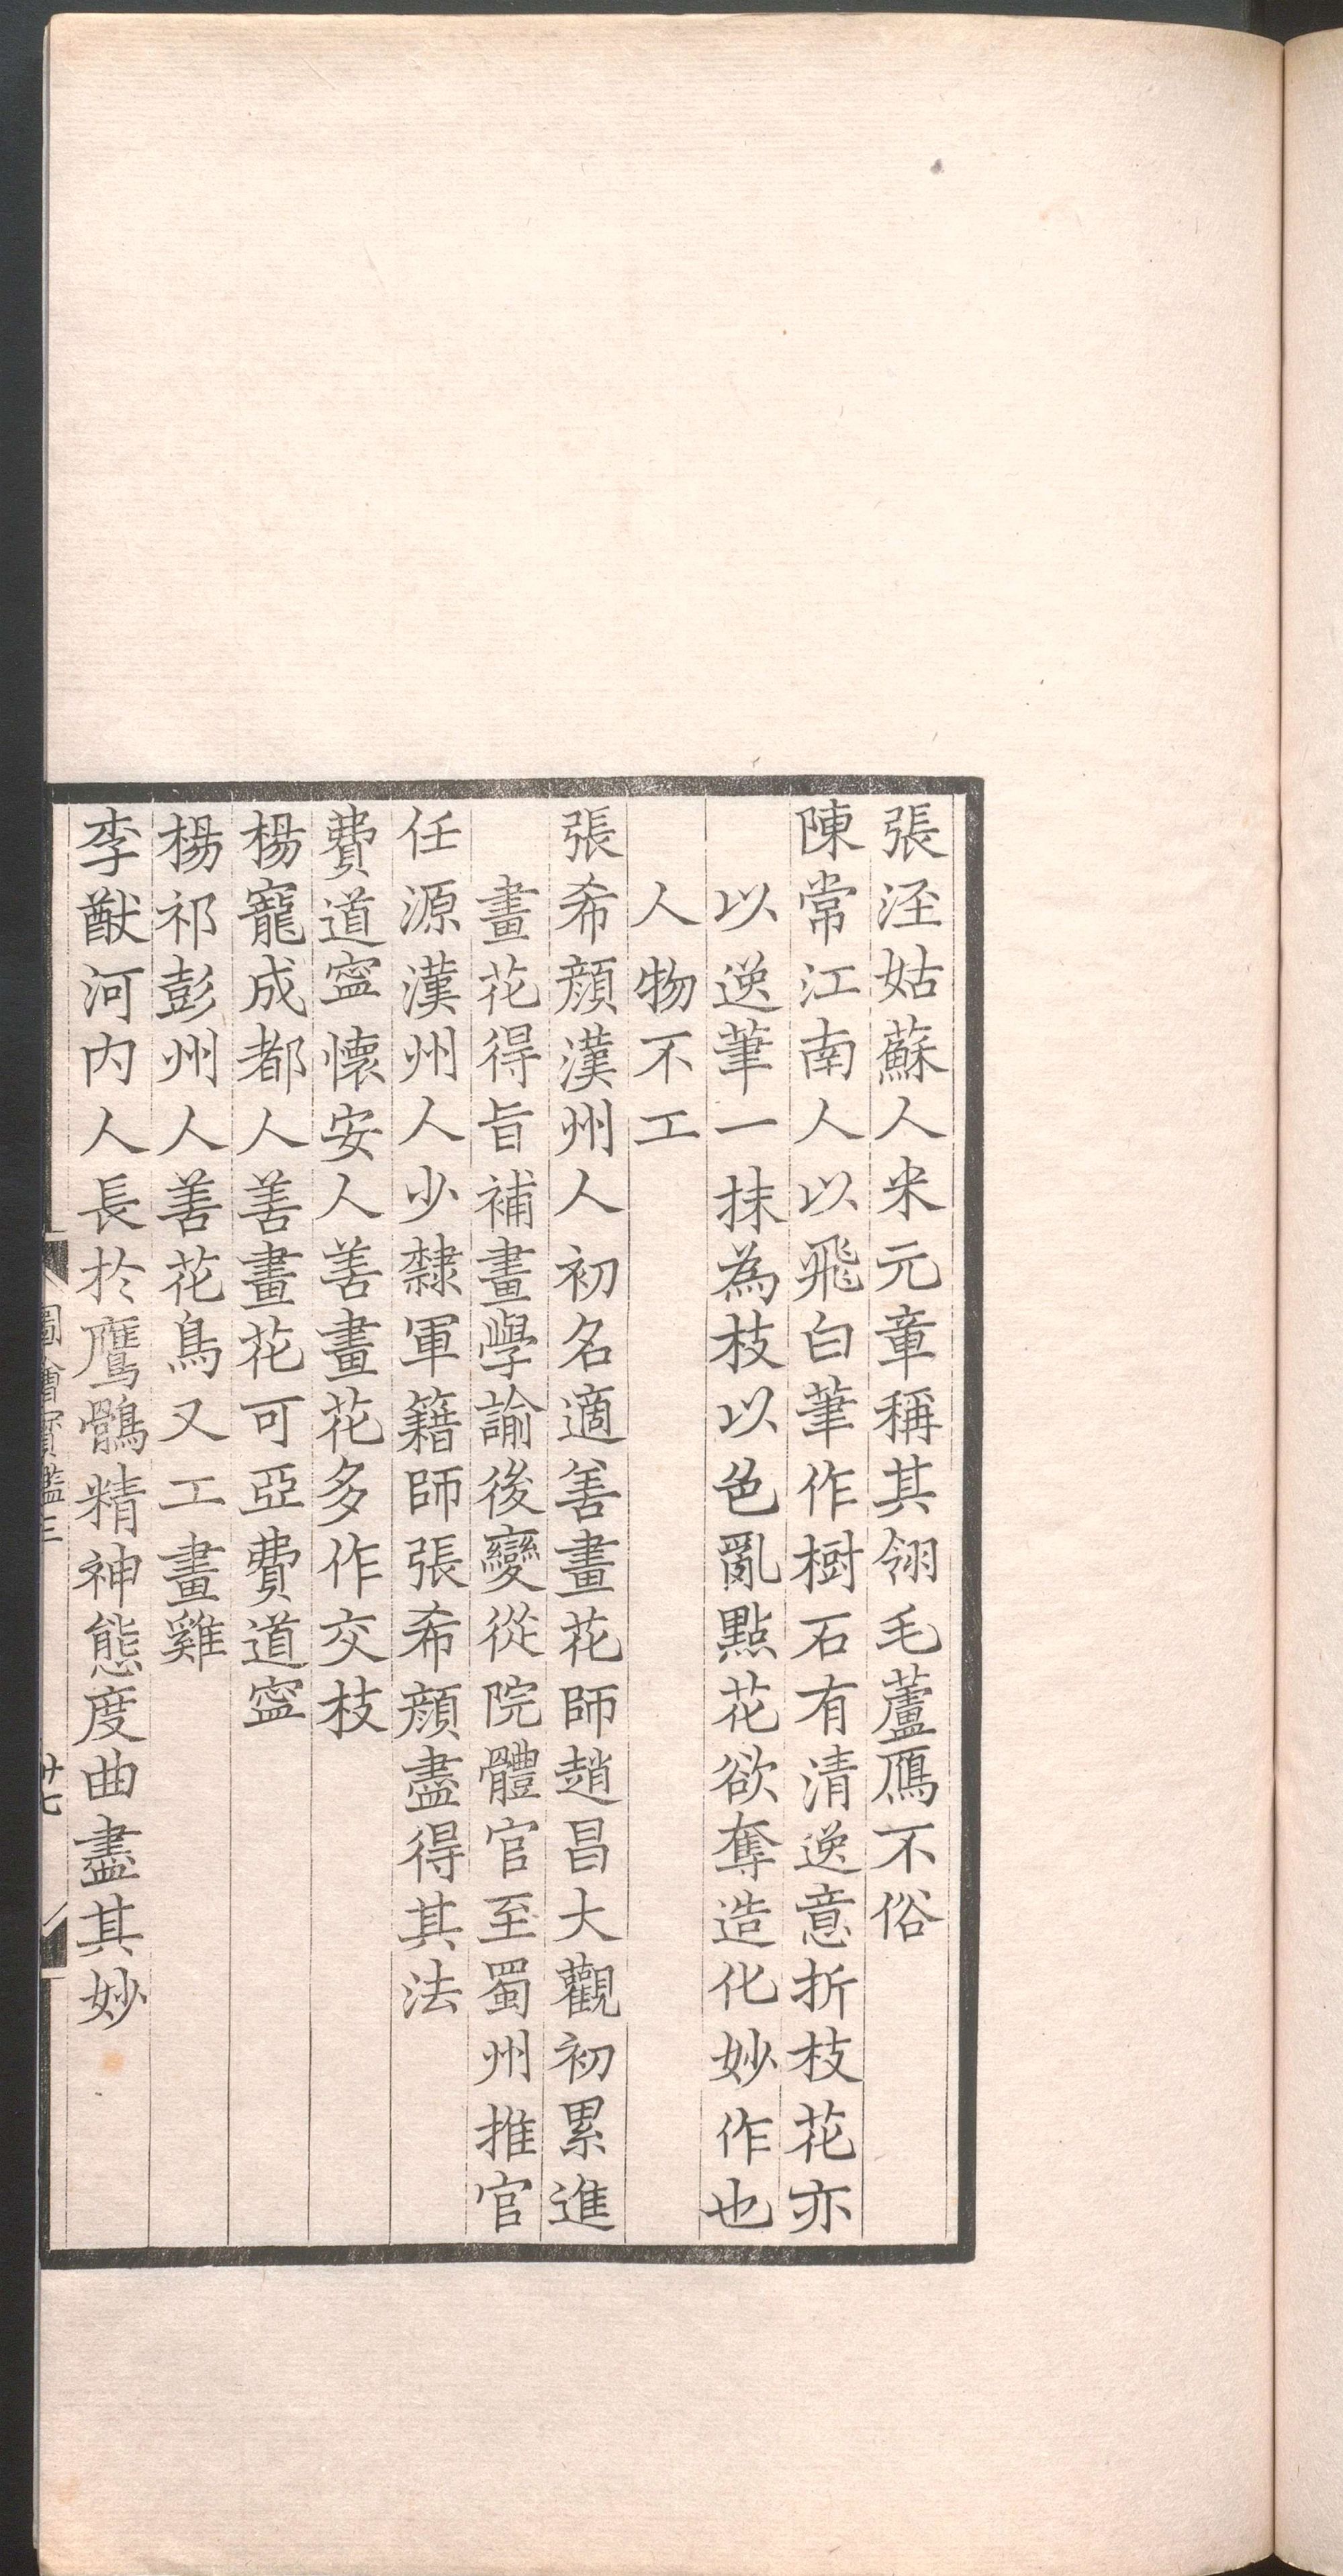 張涇姑蘇人米元章稱其翎毛蘆鴈不俗
陳常江南人以飛白筆作樹石有清逸意折枝花亦
以逸筆一抹為枝以色亂點花欲奪造化妙作也
人物不工
張希顏漢州人初名適善畫花師趙昌大觀初累進
畫花得旨補畫學諭後變從院體官至蜀州推官
任源漢州人少隸軍籍師張希顏盡得其法
費道寍懷安人善畫花多作交枝
楊寵成都人善畫花可亞費道寍
楊祁彭州人善花鳥又工畫雞
李猷河內人長於鷹鶻精神態度曲盡其妙
圖繪寶鑑三
廿七